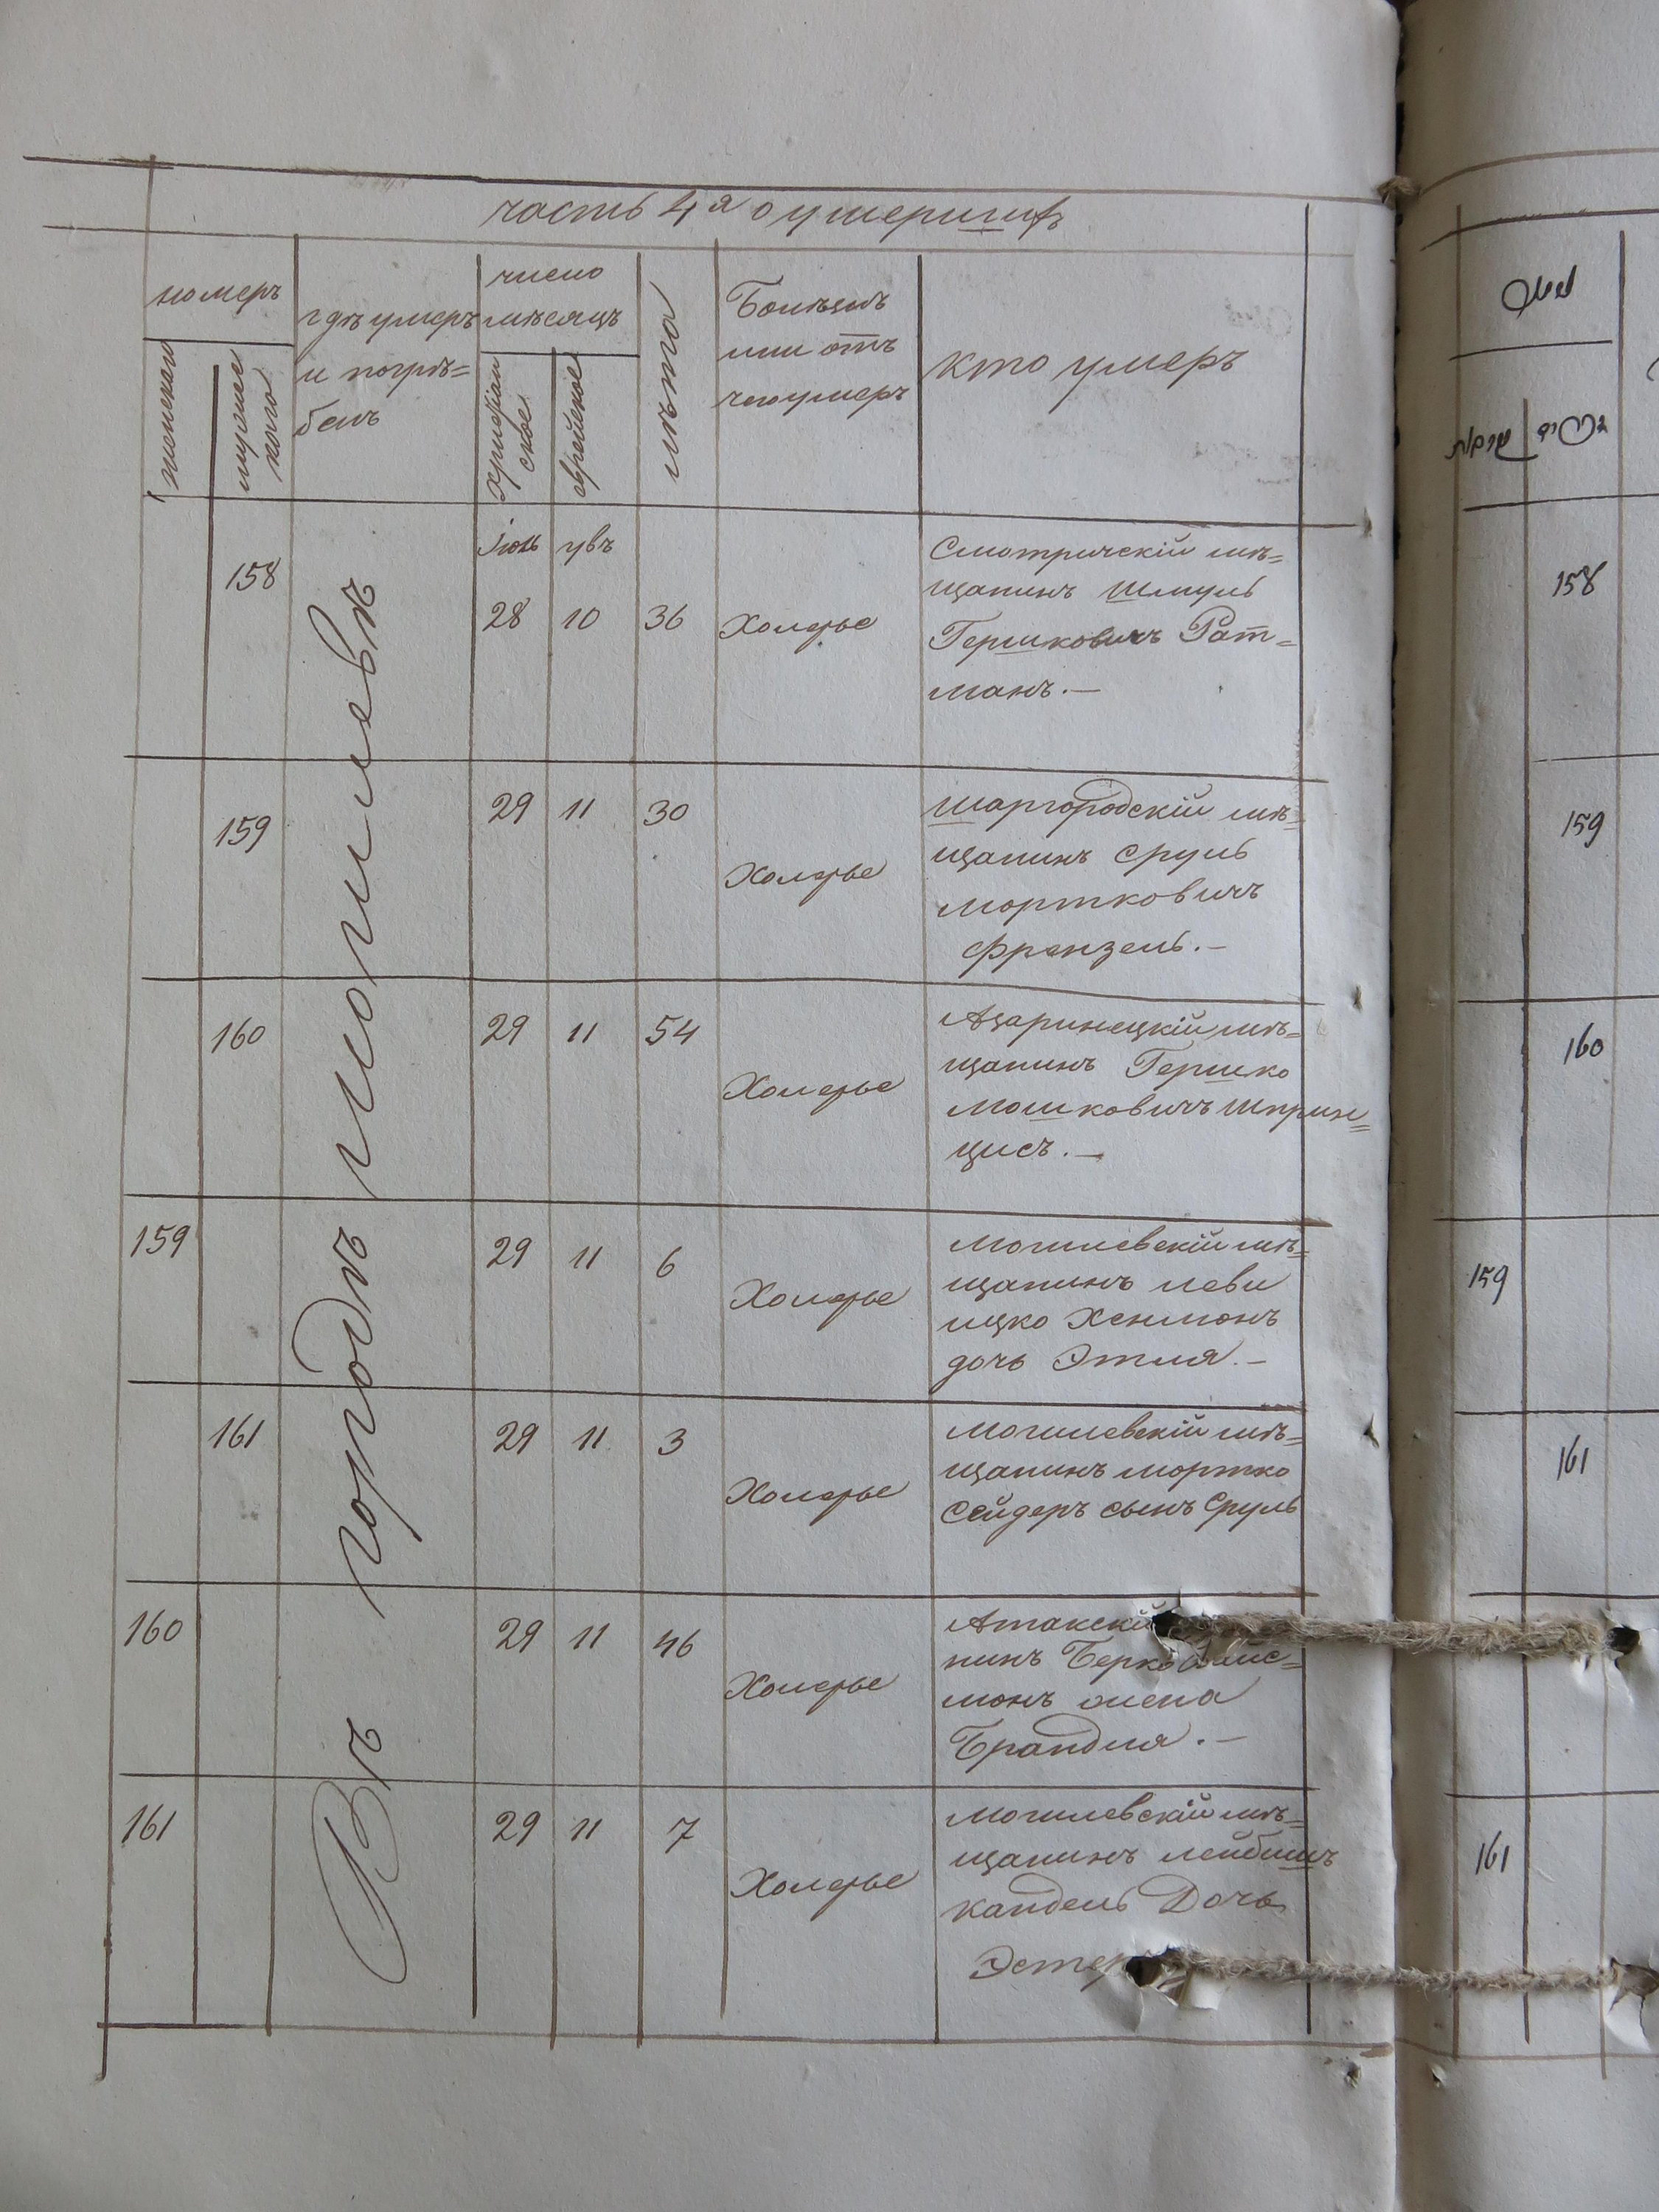 часть 4я о умершихъ
номеръ
женскаго
мужес
каго
гдѣ умеръ
и погрѣ=
бенъ
число
мѣсяцъ
христіан
ское
еврейское
лѣта
Болѣзнь
или отъ
чего умеръ
кто умеръ
Въ городѣ могилевѣ
158
іюль увъ
28 10 36 Холерье
Смотричскій мѣ=
щанинъ Шмуль
Гершковичъ Рат=
манъ.—
159
29 11 30
Холерье
Шаргородскій мѣ=
щанинъ Сруль
Мортковичъ
Френзель.—
160
29 11 54
Холерье
Азаринецкій мѣ=
щанинъ Гершко
Мошковичъ Шприн=
цисъ.—
159
29 11 6
Холерье
Могилевскій мѣ=
щанинъ леви
ицко Хенмонъ
дочь Этля.—
161
29 11 3
Холерье
Могилевскій мѣ=
щанинъ мортко
Сейдеръ сынъ Сруль
160
29 11 46
Холерье
Атакскій
нинъ Берко
монъ жена
Брандля.—
161
29 11 7
Холерье
Могилевскій мѣ=
щанинъ лейбишъ
кандель Дочь
Эстер
158
159
160
159
161
161